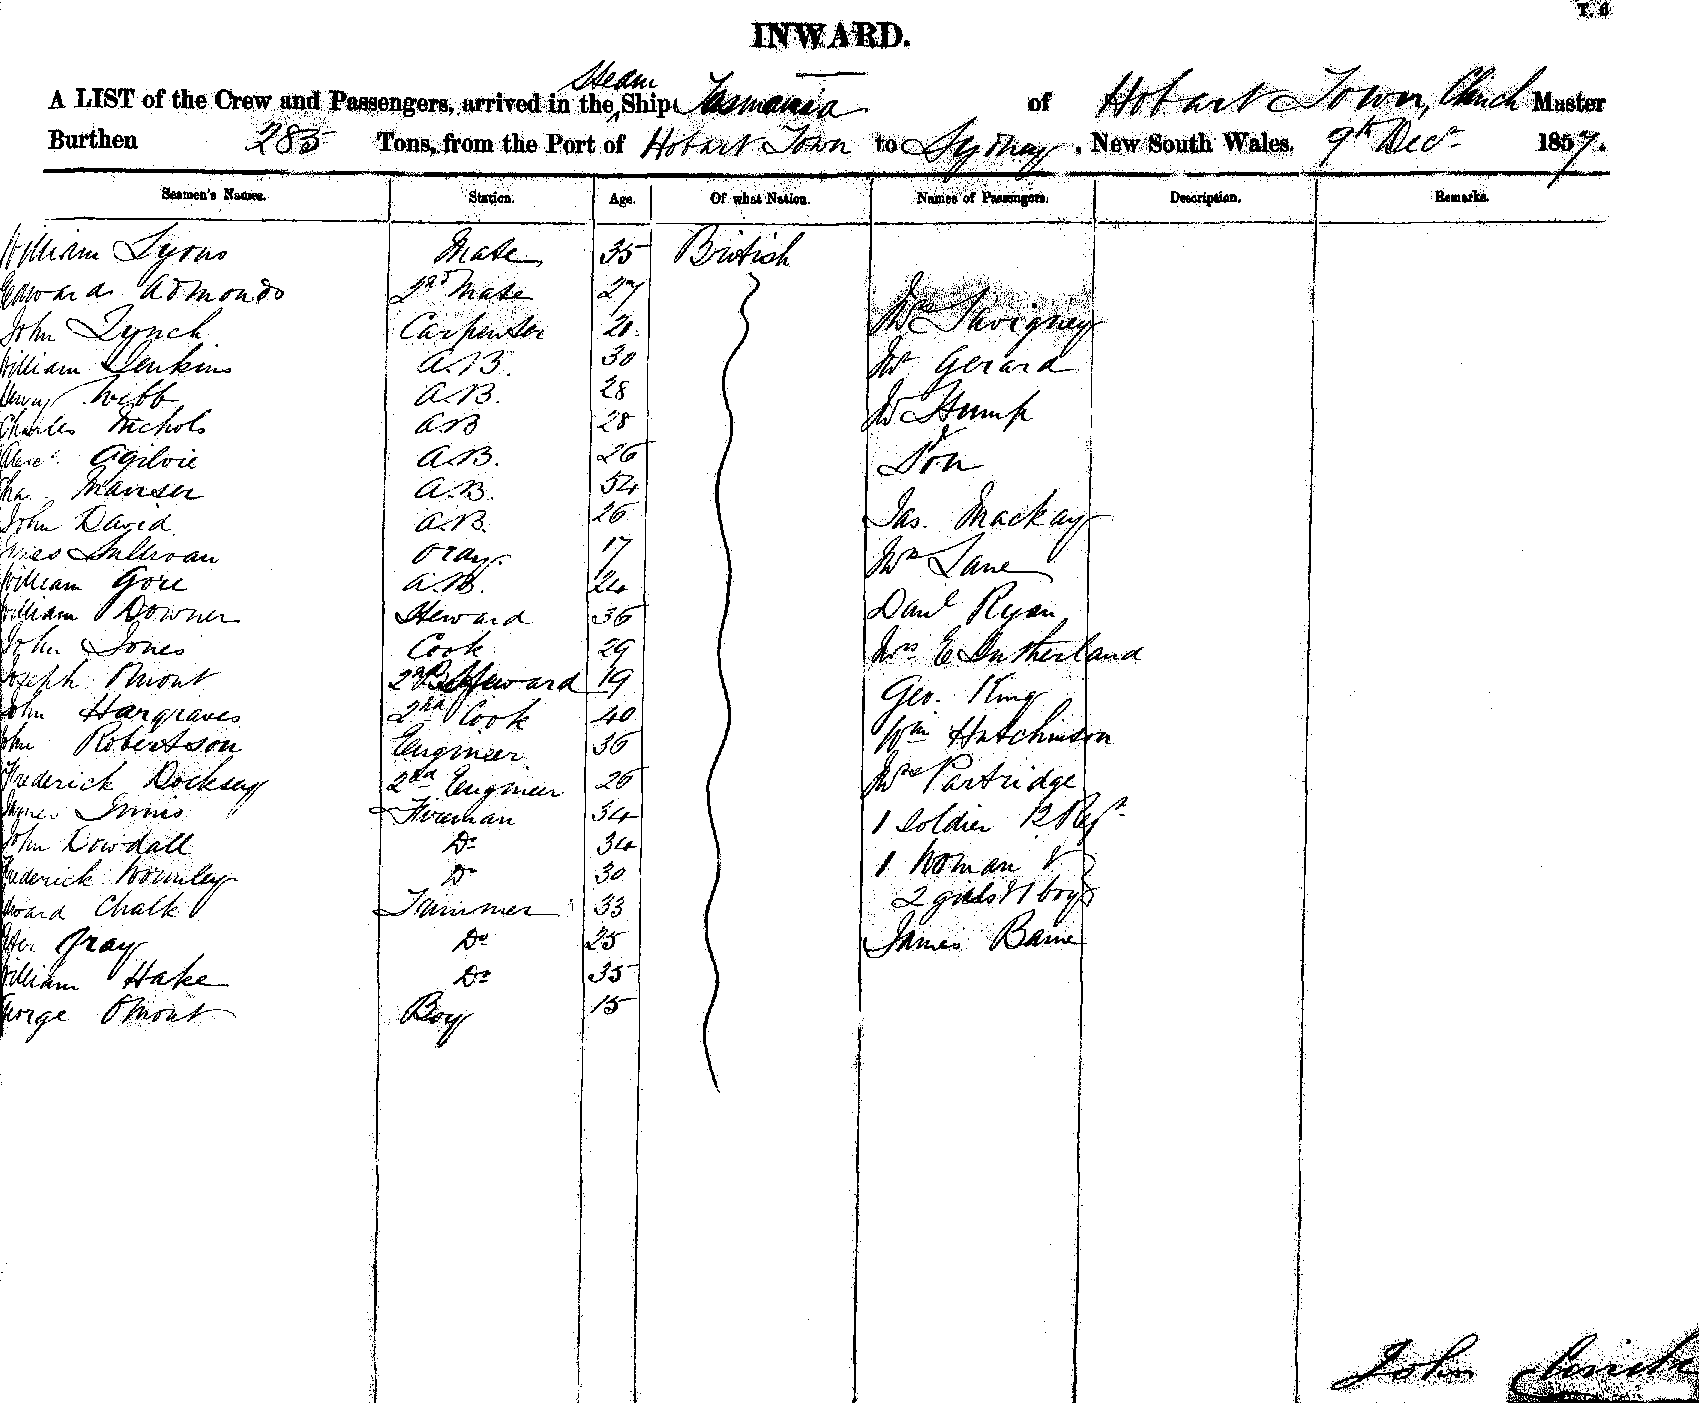 T. 6
INWARD.
A LIST of the Crew and Passengers, arrived in the Steam Ship Tasmania of Hobart Town, Clinch Master
Burthen 285 Tons, from the Port of Hobart Town to Sydney, New South Wales, 9th Decr 1857.
Seamen's Names. Station. Age. Of what Nation. Names of Passengers. Description. Remarks.
William Lyons Mate 35 British
Edward Admonds 2nd Mate 27
John Lynch Carpenter 21 Mrs Savigney
William Jenkins A.B. 30 Mr Gerard
Henry Webb A.B. 28
Charles Nichols AB 28 Mr Stump
Agilvie A.B. 26 Son
Manser A.B. 54
John David A.B. 26 Jas. Mackay
James Sullivan Ordy. 17 Mrs Lane
William Gore A.B. 24
William Downer Steward 36 Danl Ryan
John Jones Cook 29 Mrs E Sutherland
Joseph Omont 2nd Steward 19 Geo. King
John Hargraves 2nd Cook 40 Wm Hutchinson
John Robertson Engineer 36
Frederick Docksey 2nd Engineer 26 Mrs Partridge
James Innis Fireman 34 1 Soldier 12 Regt
John Dowdall Do 34 1 Woman &
Frederick Do 30 2 girls & 1 boy
Edward Chalk Trimmer 33
Peter Gray Do 25 James Bame
William Hake Do 35
George Omont Boy 15
John Clinch